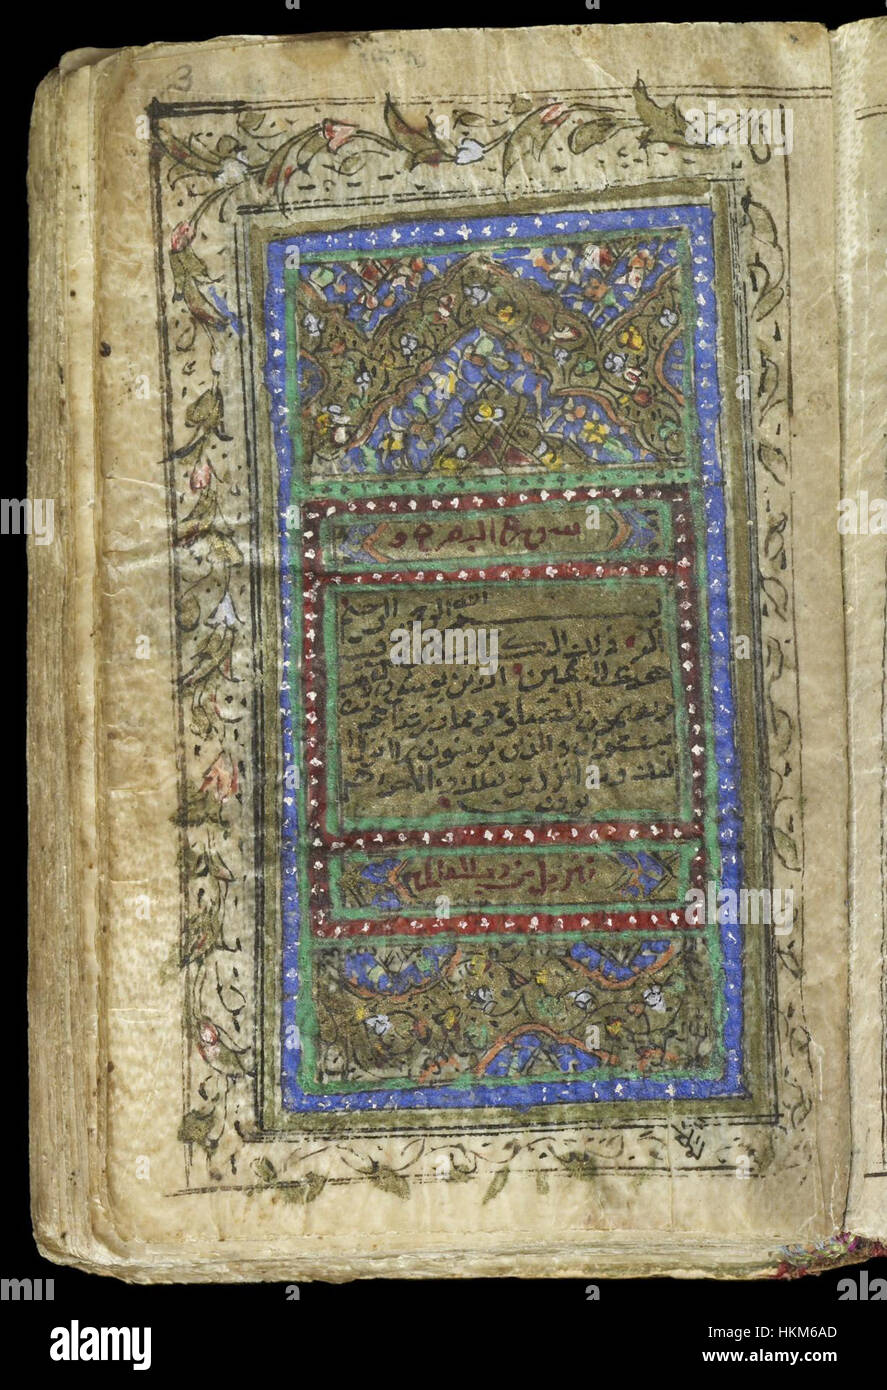 3
سورة البقرة و
بسم الله الرحمن الرحيم
الم ذلك الكتاب لا ريب فيه
هدى للمتقين الذين يؤمنون بالغيب
ويقيمون الصلوة ومما رزقناهم
ينفقون والذين يؤمنون بما انزل
اليك وما انزل من قبلك وبالآخرة هم
يوقنون
تنزيل من رب العالمين
alamy
Image ID: HKM6AD
www.alamy.com